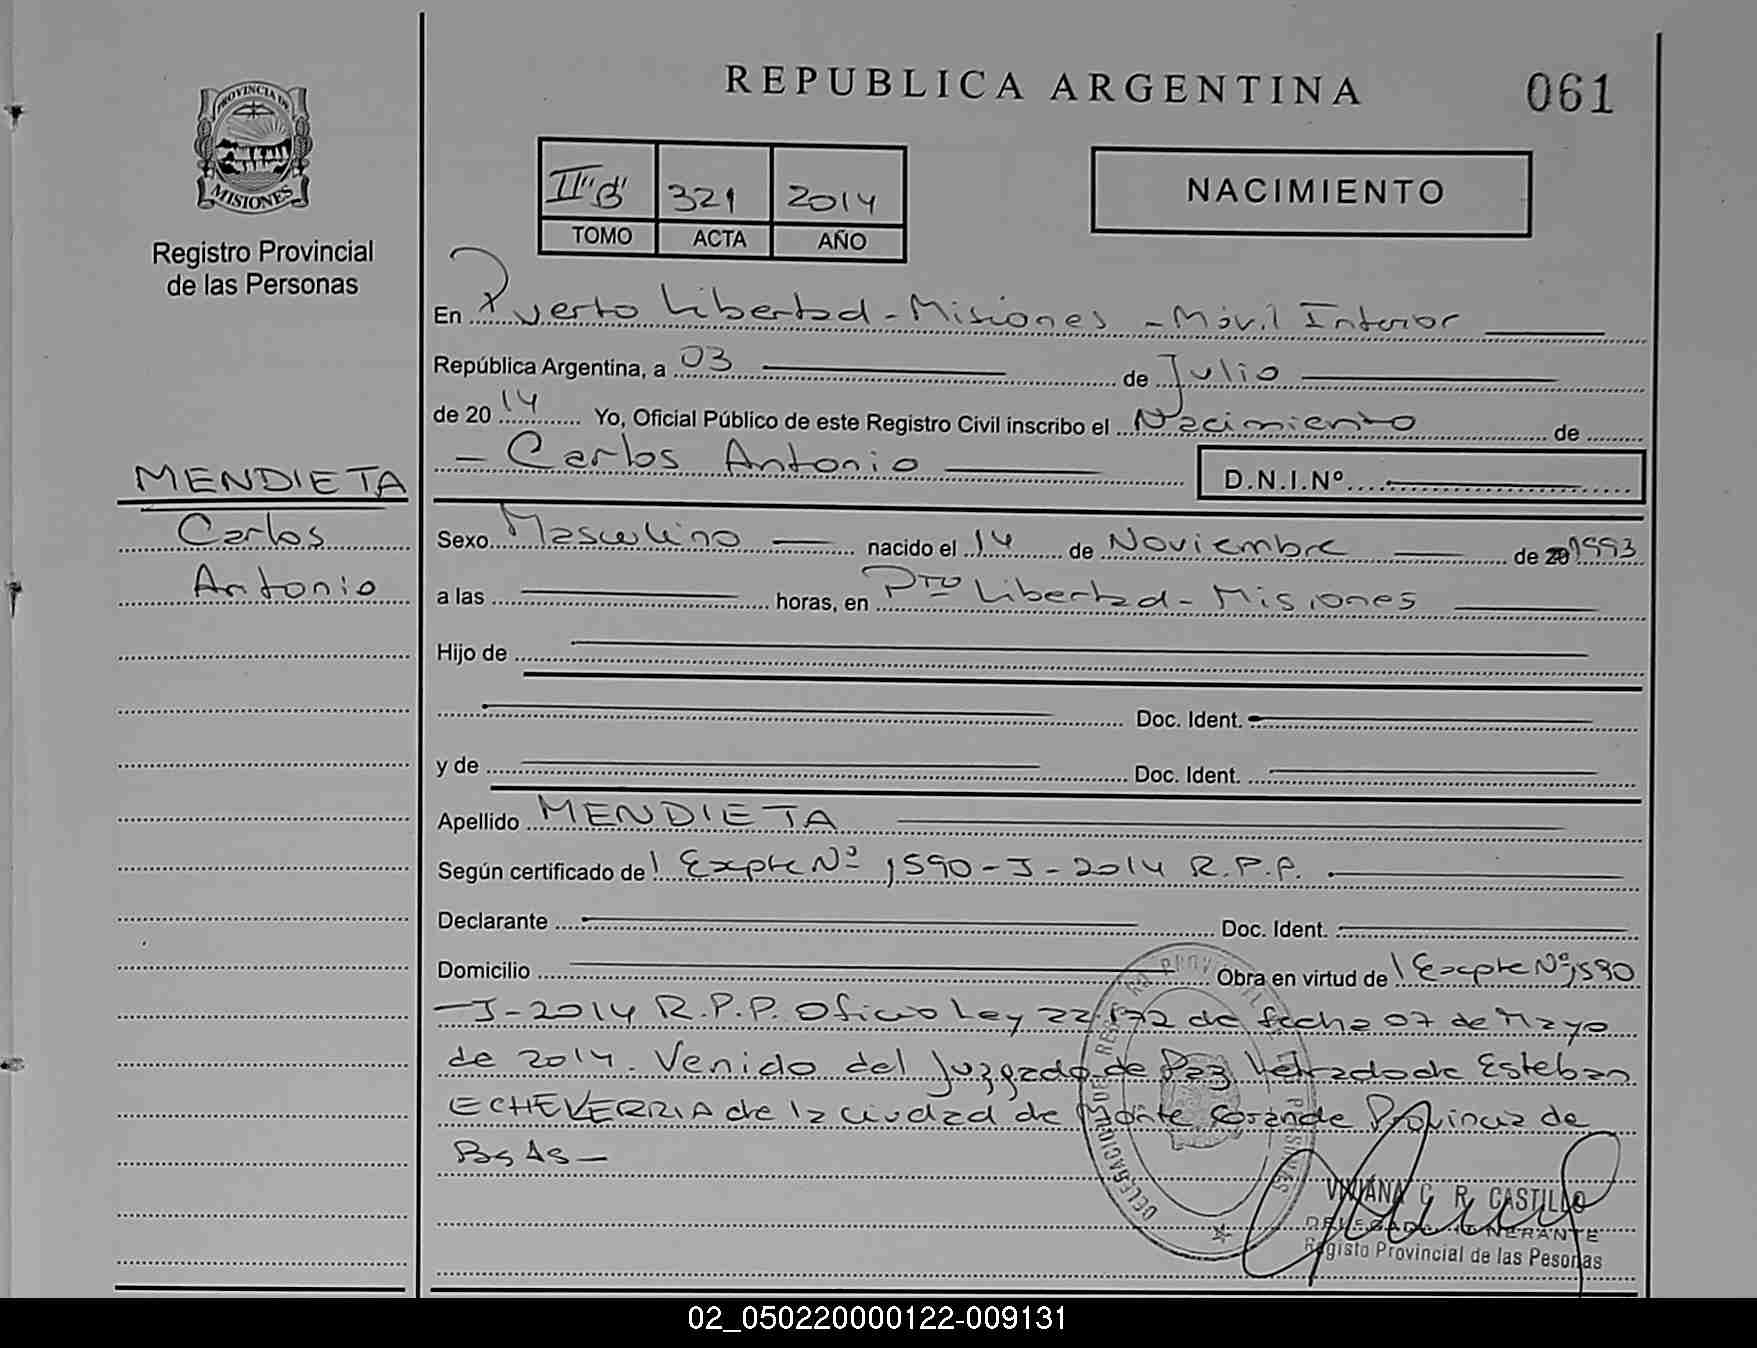 REPUBLICA ARGENTINA
061
PROVINCIA DE
MISIONES
Registro Provincial
de las Personas
II "B" 321 2014
TOMO ACTA AÑO
NACIMIENTO
En Puerto Libertad - Misiones - Móvil Interior
República Argentina, a 03 de Julio
de 2014 Yo, Oficial Público de este Registro Civil inscribo el Nacimiento de
- Carlos Antonio
D.N.I.Nº
MENDIETA
Carlos
Antonio
Sexo Masculino nacido el 14 de Noviembre de 1993
a las horas, en Pto Libertad - Misiones
Hijo de
Doc. Ident.
y de Doc. Ident.
Apellido MENDIETA
Según certificado de Expte Nº 1590-J-2014 R.P.P.
Declarante Doc. Ident.
Domicilio Obra en virtud de Expte Nº 1590
-J-2014 R.P.P. Oficio Ley 22.172 de fecha 07 de Mayo
de 2014. Venido del Juzgado de Paz Letrado de Esteban
ECHEVERRIA de la ciudad de Monte Grande Provincia de
Bs As -
VIVIANA C. R. CASTILLO
DELEGADA ITINERANTE
Registo Provincial de las Pesonas
02_050220000122-009131